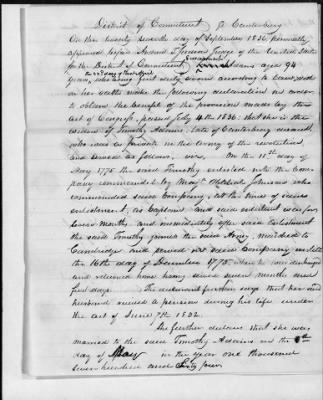 District of Connecticut ss Canterbury
On the twenty seventh day of September 1836 personally
appeared before Andrew T Judson Judge of the United States
for the District of Connecticut, Susannah Adams aged 94
to 22d day of last April
years, who being first duly sworn according to law, doth
on her oath make the following declaration in order
to obtain the benefit of the provision made by the
act of Congress, passed July 4 1836. that she is the
widow of Timothy Adams, late of Canterbury deceased
who was a private in the army of the revolution
and served as follows, viz. On the 10th day of
May 1775 the said Timothy enlisted into the Com-
pany commanded by Majr Obadiah Johnson who
commanded said Company, at the time of said
enlistment, as Captain and said enlistment was for
seven months, and immediately after said Enlistment
the said Timothy joined the said Army, marched to
Cambridge and served in said Company until
the 16th day of December 1775 when he was discharged
and returned home having served seven months and
five days. The declarant further says that her said
husband received a pension during his life under
the act of June 7th 1832.
She further declares that she was
married to the said Timothy Adams on the
day of May in the year one thousand
seven hundred and Sixty four.